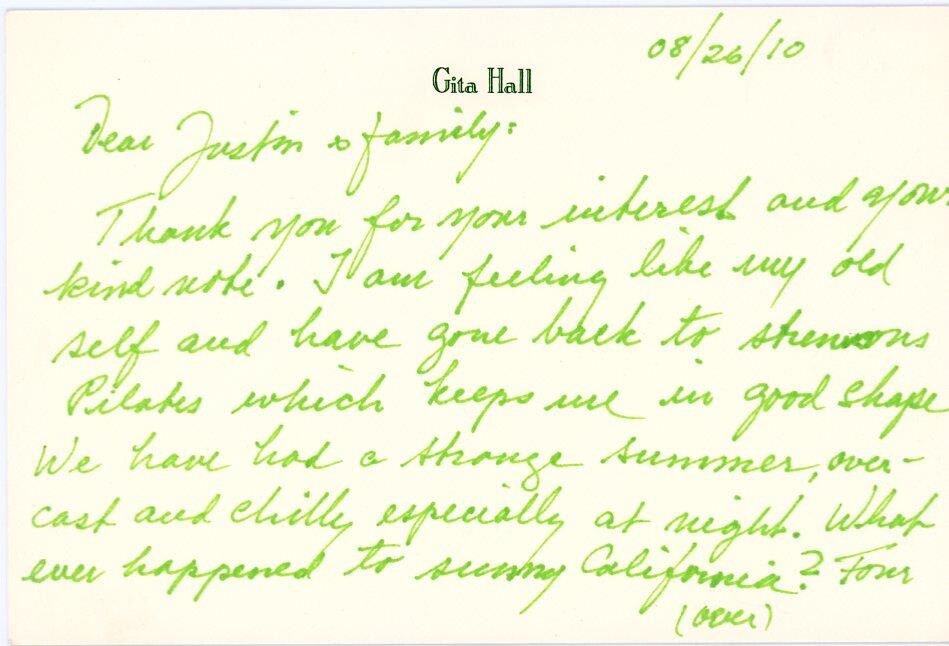 08/26/10
Gita Hall
Dear Justin & family:
Thank you for your interest and your
kind note. I am feeling like my old
self and have gone back to strenuous
Pilates which keeps me in good shape
We have had a strange summer, over-
cast and chilly especially at night. What
ever happened to sunny California? Four
(over)